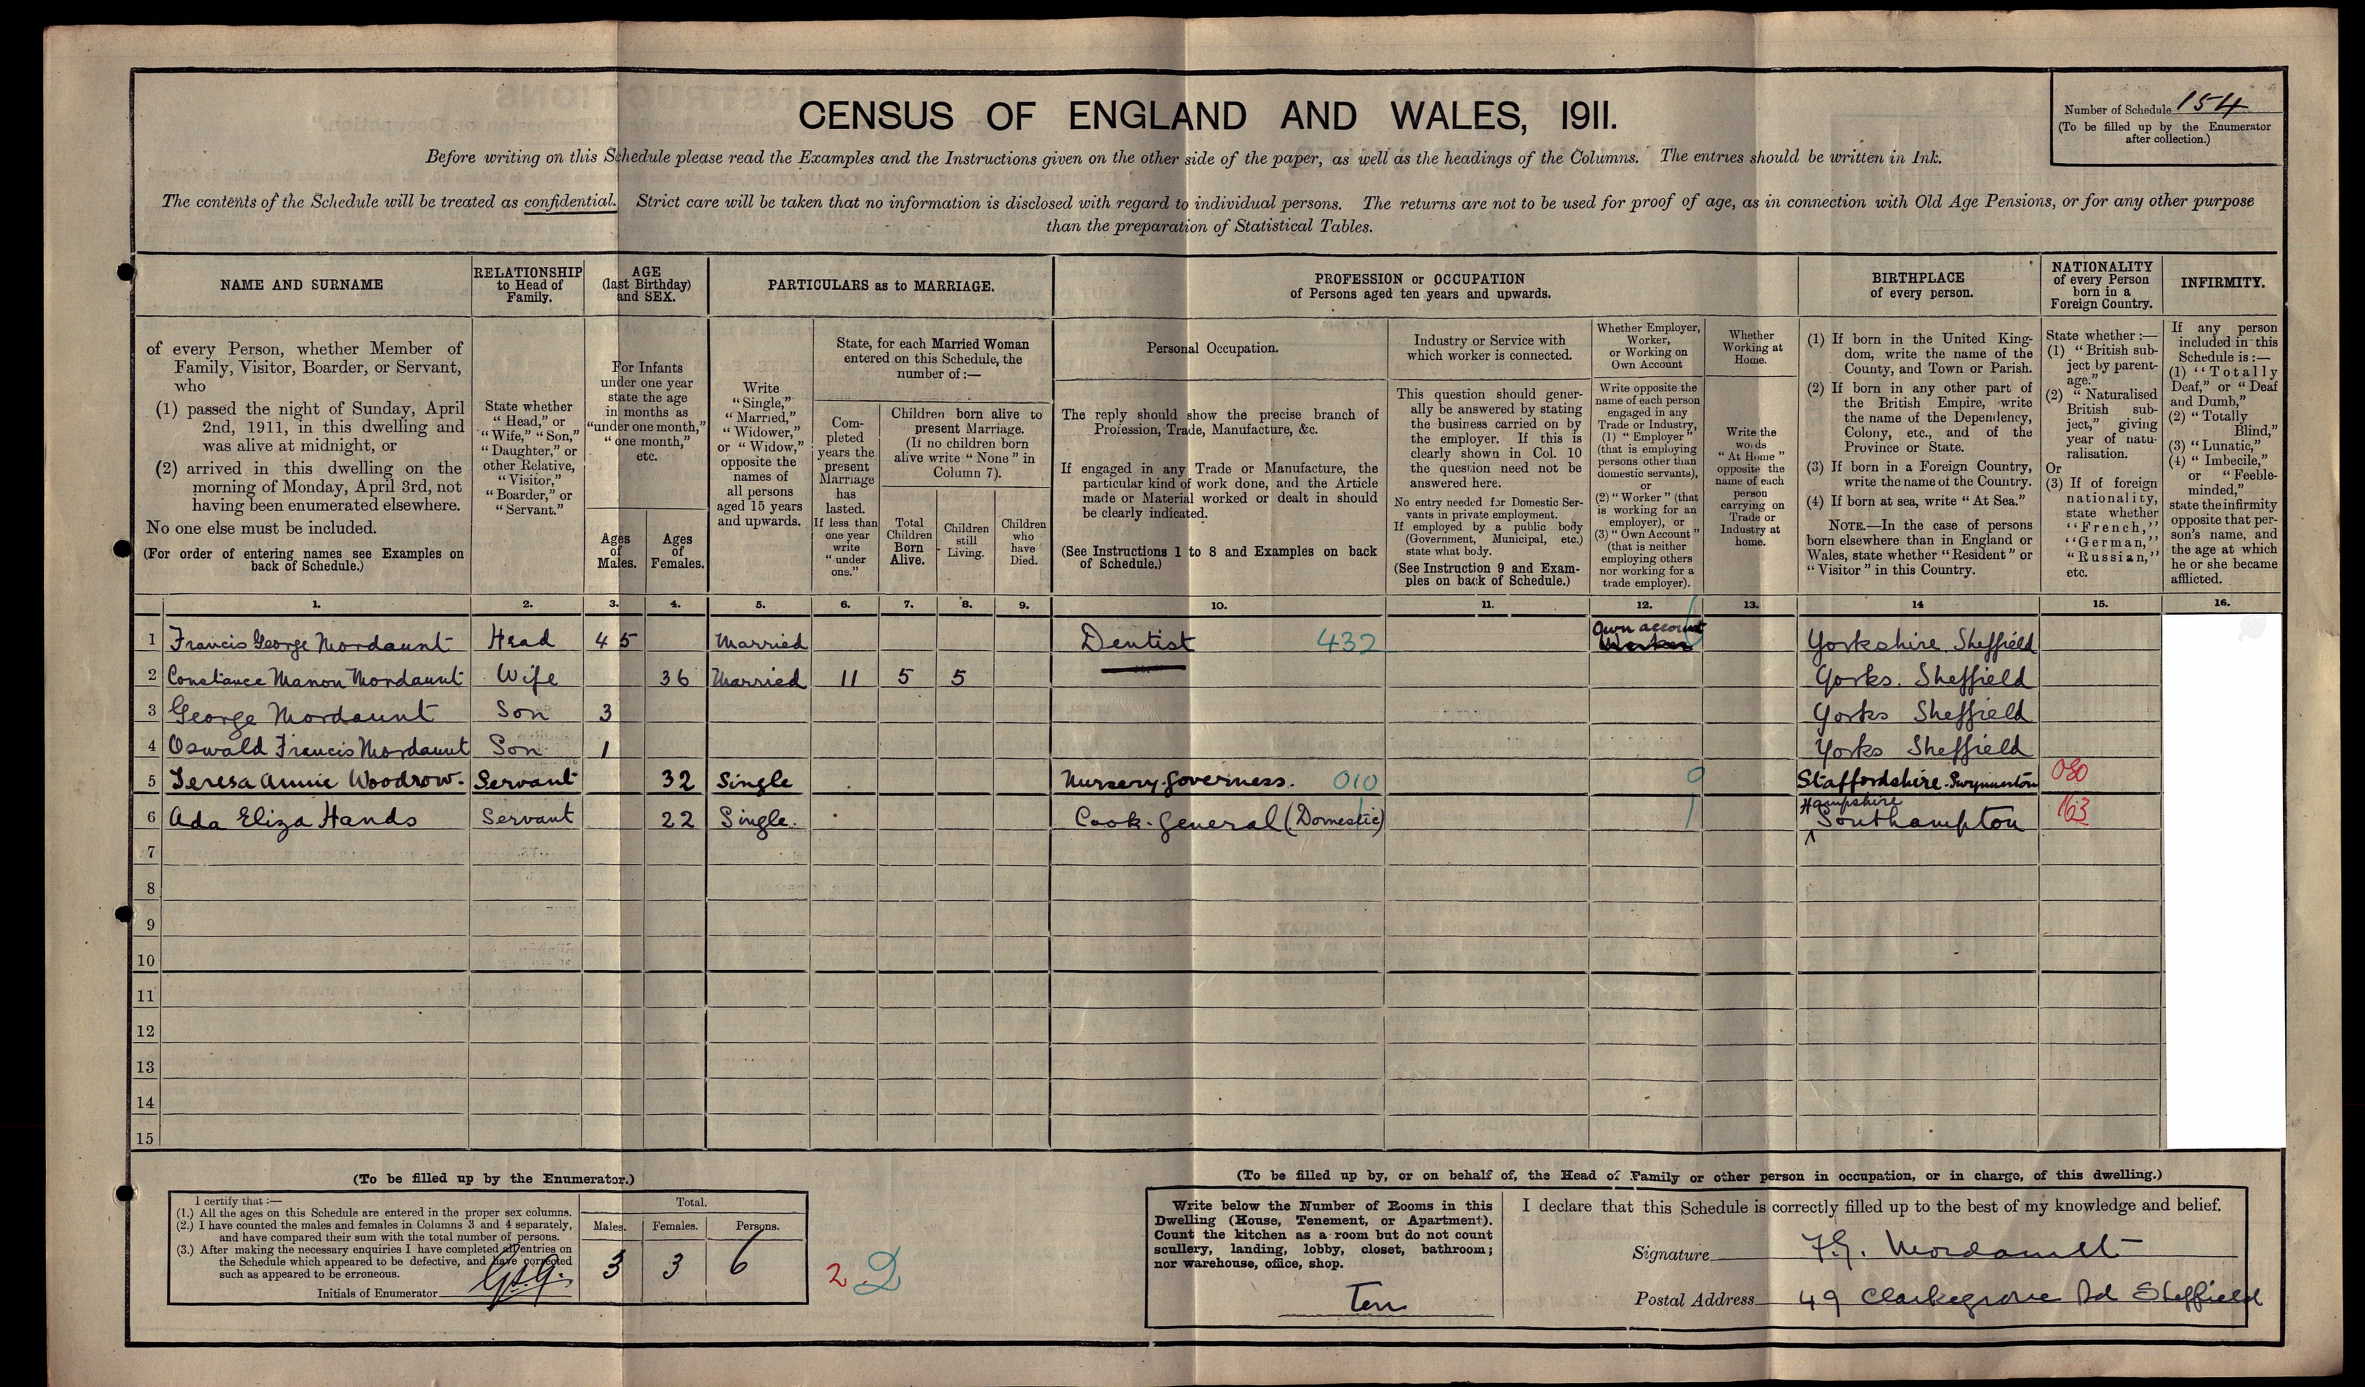 CENSUS OF ENGLAND AND WALES, 1911.
Number of Schedule 154
(To be filled up by the Enumerator
after collection.)
Before writing on this Schedule please read the Examples and the Instructions given on the other side of the paper, as well as the headings of the Columns. The entries should be written in Ink.
The contents of the Schedule will be treated as confidential. Strict care will be taken that no information is disclosed with regard to individual persons. The returns are not to be used for proof of age, as in connection with Old Age Pensions, or for any other purpose
than the preparation of Statistical Tables.
NAME AND SURNAME
RELATIONSHIP
to Head of
Family.
AGE
(last Birthday)
and SEX.
PARTICULARS as to MARRIAGE.
PROFESSION or OCCUPATION
of Persons aged ten years and upwards.
BIRTHPLACE
of every person.
NATIONALITY
of every Person
born in a
Foreign Country.
INFIRMITY.
of every Person, whether Member of
Family, Visitor, Boarder, or Servant,
who
(1) passed the night of Sunday, April
2nd, 1911, in this dwelling and
was alive at midnight, or
(2) arrived in this dwelling on the
morning of Monday, April 3rd, not
having been enumerated elsewhere.
No one else must be included.
(For order of entering names see Examples on
back of Schedule.)
State whether
"Head," or
"Wife," "Son,"
"Daughter," or
other Relative,
"Visitor,"
"Boarder," or
"Servant."
For Infants
under one year
state the age
in months as
"under one month,"
"one month,"
etc.
Ages
of
Males.
Ages
of
Females.
Write
"Single,"
"Married,"
"Widower,"
or "Widow,"
opposite the
names of
all persons
aged 15 years
and upwards.
State, for each Married Woman
entered on this Schedule, the
number of:—
Com-
pleted
years the
present
Marriage
has
lasted.
If less than
one year
write
"under
one."
Children born alive to
present Marriage.
(If no children born
alive write "None" in
Column 7).
Total
Children
Born
Alive.
Children
still
Living.
Children
who
have
Died.
Personal Occupation.
The reply should show the precise branch of
Profession, Trade, Manufacture, &c.
If engaged in any Trade or Manufacture, the
particular kind of work done, and the Article
made or Material worked or dealt in should
be clearly indicated.
(See Instructions 1 to 8 and Examples on back
of Schedule.)
Industry or Service with
which worker is connected.
This question should gener-
ally be answered by stating
the business carried on by
the employer. If this is
clearly shown in Col. 10
the question need not be
answered here.
No entry needed for Domestic Ser-
vants in private employment.
If employed by a public body
(Government, Municipal, etc.)
state what body.
(See Instruction 9 and Exam-
ples on back of Schedule.)
Whether Employer,
Worker,
or Working on
Own Account
Write opposite the
name of each person
engaged in any
Trade or Industry,
(1) "Employer"
(that is employing
persons other than
domestic servants),
or
(2) "Worker" (that
is working for an
employer), or
(3) "Own Account"
(that is neither
employing others
nor working for a
trade employer).
Whether
Working at
Home.
Write the
words
"At Home"
opposite the
name of each
person
carrying on
Trade or
Industry at
home.
(1) If born in the United King-
dom, write the name of the
County, and Town or Parish.
(2) If born in any other part of
the British Empire, write
the name of the Dependency,
Colony, etc., and of the
Province or State.
(3) If born in a Foreign Country,
write the name of the Country.
(4) If born at sea, write "At Sea."
NOTE.—In the case of persons
born elsewhere than in England or
Wales, state whether "Resident" or
"Visitor" in this Country.
State whether:—
(1) "British sub-
ject by parent-
age."
(2) "Naturalised
British sub-
ject," giving
year of natu-
ralisation.
Or
(3) If of foreign
nationality,
state whether
"French,"
"German,"
"Russian,"
etc.
If any person
included in this
Schedule is:—
(1) "Totally
Deaf," or "Deaf
and Dumb,"
(2) "Totally
Blind,"
(3) "Lunatic,"
(4) "Imbecile,"
or "Feeble-
minded,"
state the infirmity
opposite that per-
son's name, and
the age at which
he or she became
afflicted.
1. 2. 3. 4. 5. 6. 7. 8. 9. 10. 11. 12. 13. 14 15. 16.
Own account
1 Francis George Mordaunt Head 45 Married Dentist 432 Worker Yorkshire Sheffield
2 Constance Manon Mordaunt Wife 36 Married 11 5 5 Yorks. Sheffield
3 George Mordaunt Son 3 Yorks Sheffield
4 Oswald Francis Mordaunt Son 1 Yorks Sheffield
5 Teresa Annie Woodrow. Servant 32 Single Nursery-governess. 010 9 Staffordshire. Swynnerton 080
Hampshire
6 Ada Eliza Hands Servant 22 Single. Cook-general (Domestic) 1 Southampton 163
7
8
9
10
11
12
13
14
15
(To be filled up by the Enumerator.)
I certify that:—
(1.) All the ages on this Schedule are entered in the proper sex columns.
(2.) I have counted the males and females in Columns 3 and 4 separately,
and have compared their sum with the total number of persons.
(3.) After making the necessary enquiries I have completed all entries on
the Schedule which appeared to be defective, and have corrected
such as appeared to be erroneous.
Initials of Enumerator
Total.
Males. Females. Persons.
3 3 6
2. 2
(To be filled up by, or on behalf of, the Head of Family or other person in occupation, or in charge, of this dwelling.)
Write below the Number of Rooms in this
Dwelling (House, Tenement, or Apartment).
Count the kitchen as a room but do not count
scullery, landing, lobby, closet, bathroom;
nor warehouse, office, shop.
Ten
I declare that this Schedule is correctly filled up to the best of my knowledge and belief.
Signature F.G. Mordaunt
Postal Address 49 Clarkegrove Rd Sheffield